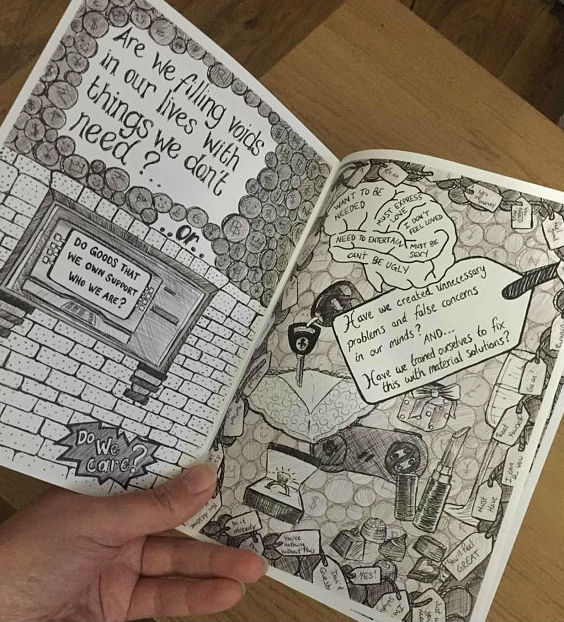 Are we filling voids
in our lives with
things we don't
need?...
...Or..
DO GOODS THAT
WE OWN SUPPORT
WHO WE ARE?
Do We
Care?
WANT TO BE
NEEDED
MUST EXPRESS
LOVE
I DON'T
FEEL LOVED
NEED TO ENTERTAIN
MUST BE
SEXY
CAN'T BE UGLY
Have we created unnecessary
problems and false concerns
in our minds?
AND...
Have we trained ourselves to fix
this with material solutions?
Treat
Yourself
Must
Have
You'll feel
GREAT
Do it
already
You're
nothing
without this
Don't
YES!